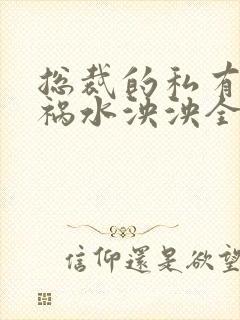 总裁的私有
祸水泱泱全
信仰還是欲望